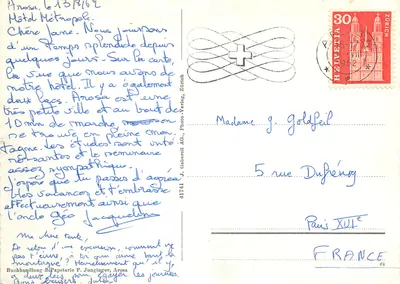 Arosa, 613/8/62
Hôtel Métropole.
Chère Jane. Nous jouissons
d'un temps splendide depuis
quelques jours. Sur la carte,
la vue que nous avons de
notre hôtel. Il y a également
deux lacs. Arosa est une
très petite ville et au bout de
10 min de marche on
se trouve en pleine mon
tagne. Les études sont inté
ressantes et le séminaire
assez sympathique.
J'espère que tu passes d'agréa
bles vacances et t'embrasse
affectueusement ainsi que
l'oncle Géo Jacqueline
Ma chère tante,
Et retour d'une excursion,
montagne, Heureusement qu'il y
a deux lacs pour égayer les journées
Buchhandlung & Papeterie F. Junginger, Arosa
41741 J. Gaberell AG., Photo-Verlag, Zürich
30
HELVETIA
ZÜRICH
Madame J. Goldfeil
5 rue Dufrénoy
Paris XVIe
FRANCE